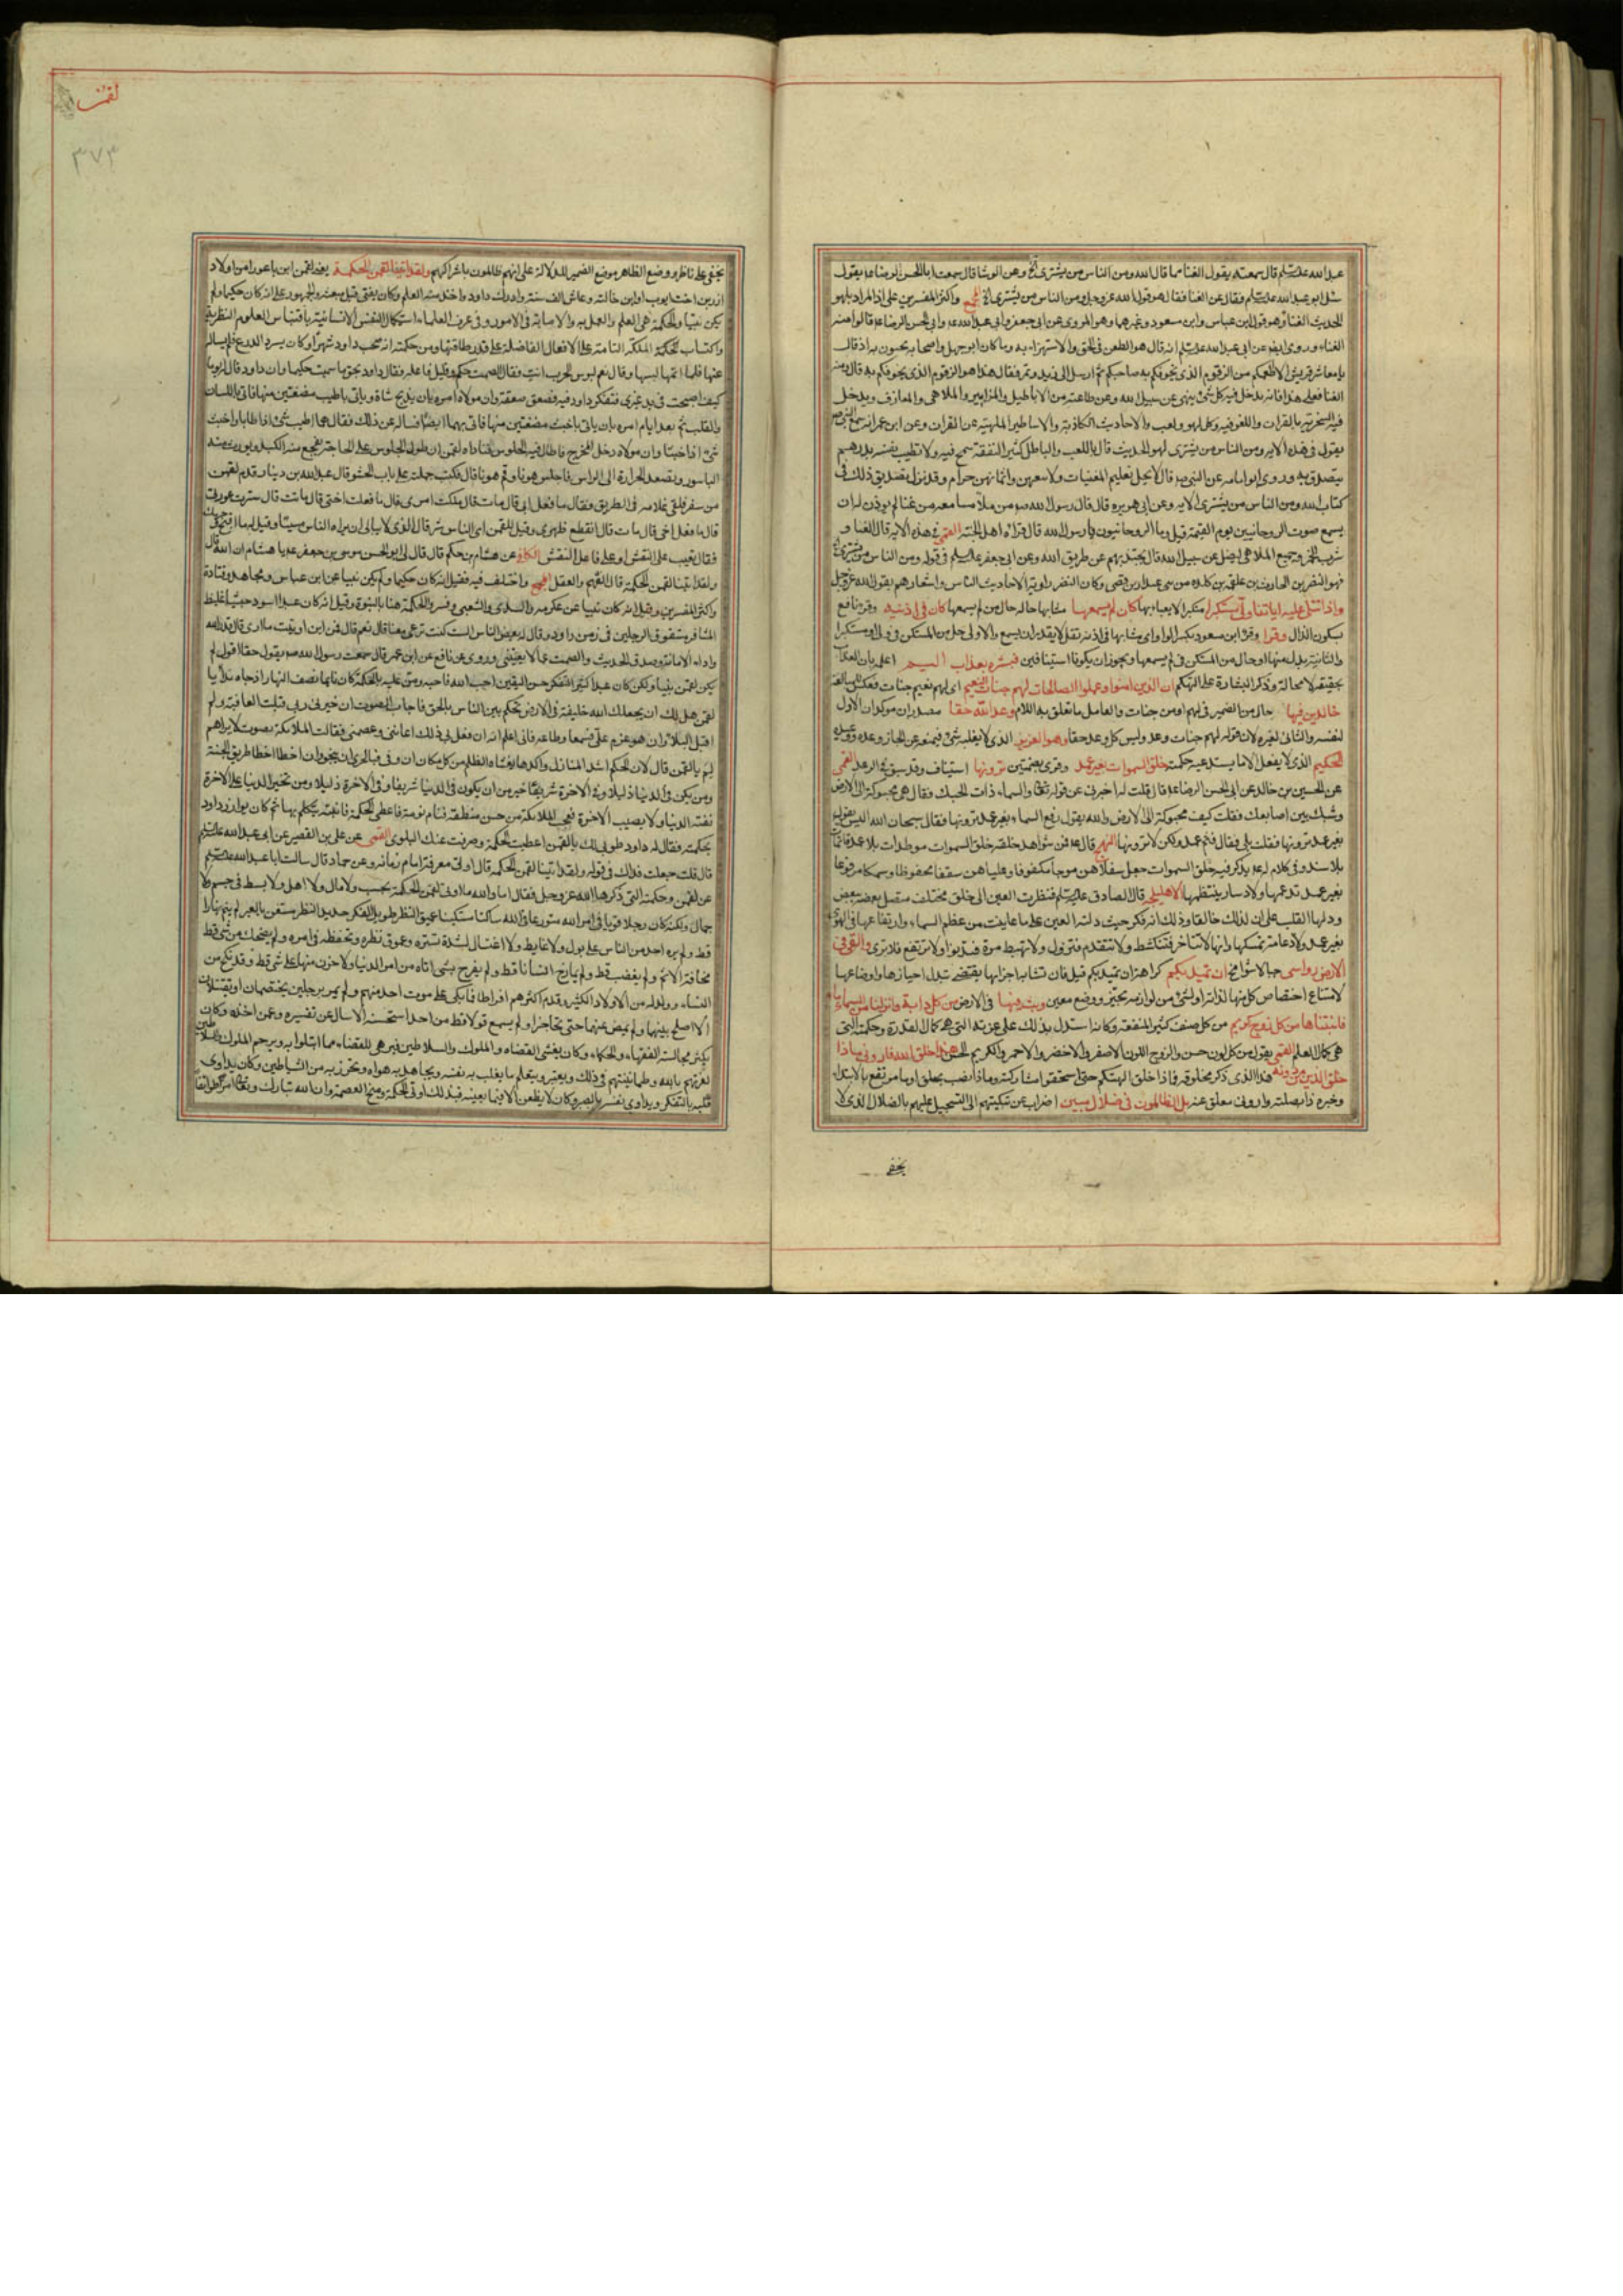 عبد الله عليه السلام قال سمعته يقول الغنا مما قال الله ومن الناس من يشترى الخ وعن الوشا قال سمعت ابا الحسن الرضا ع يقول
سئل ابو عبد الله عليه السلام فقال عن الغنا فقال هو قول الله عز وجل ومن الناس من يشترى الخ المجمع واكثر المفسرين على ان المراد بلهو
الحديث الغنا وهو قول ابن عباس وابن مسعود وغيرهما وهو المروى عن ابى جعفر وابى عبد الله ع وابى الحسن الرضا ع قالوا منه
الغناء وروى ايضا عن ابى عبد الله عليه السلام انه قال هو الطعن فى الحق والاستهزاء به وما كان ابو جهل واصحابه يجيبون به اذ قال
يا معاشر قريش الا اطعمكم من الزقوم الذى يخوفكم به صاحبكم ثم ارسل الى زبد وتمر فقال هذا هو الزقوم الذى يخوفكم به قال ومنه
الغنا فعلى هذا فانه يدخل فيه كل شئ ينهى عن سبيل الله وعن طاعته من الاباطيل والمزامير والملاهى والمعازف ويدخل
فيه السخرية بالقران واللغو فيه وكل لهو ولعب والاحاديث الكاذبة والاساطير الملهية عن القران وعن ابن عمر انه سمع النبى ص
يقول فى هذه الايه ومن الناس من يشترى لهو الحديث قال باللعب والباطل كثير النفقة سمح فيه ولا تطيب نفسه بدرهم
يتصدق به وروى ابو امامه عن النبى ص قال لا يحل تعليم المغنيات ولا بيعهن واثمانهن حرام وقد نزل تصديق ذلك فى
كتاب الله ومن الناس من يشترى الايه وعن ابى هريره قال قال رسول الله ص من ملأ مسامعه من غنا لم يوذن له ان
يسمع صوت الروحانيين يوم القيمة قيل وما الروحانيون يا رسول الله قال قراء اهل الجنة القمى فى هذه الايه قال الغنا و
شرب الخمر وجميع الملاهى ليضل عن سبيل الله قال يحيد بهم عن طريق الله وعن ابى جعفر عليه السلام فى قوله ومن الناس من يشترى
فهو النضر بن الحارث بن علقمه بن كلده من بنى عبد الدار بن قصى وكان النضر راوية لاحاديث الناس واشعارهم يقول الله عز وجل
واذا تتلى عليه اياتنا ولى مستكبرا متكبرا لا يعبا بها كان لم يسمعها مشابها حاله حال من لم يسمعها كان فى اذنيه وقرء نافع
بسكون الذال وقرا وقرء ابن مسعود بكسر الواو اى مشابها فى اذنه ثقل لا يقدر ان يسمع والاولى حال من المستكن فى ولى او مستكبرا
والثانية بدل منها او حال من المستكن فى لم يسمعها ويجوز ان يكونا استينافين فبشره بعذاب اليم اعلمه بان العذاب
يحيقه لا محالة وذكر البشارة على التهكم ان الذين امنوا وعملوا الصالحات لهم جنات النعيم اى لهم نعيم جنات فعكس للمبالغة
خالدين فيها حال من الضمير فى لهم او من جنات والعامل ما تعلق به اللام وعد الله حقا مصدران موكدان الاول
لنفسه والثانى لغيره لان قوله لهم جنات وعد وليس كل وعد حقا وهو العزيز الذى لا يغلبه شئ فيمنعه عن انجاز وعده ووعيده
الحكيم الذى لا يفعل الا ما يستدعيه حكمته خلق السموات بغير عمد وقرى بضمتين ترونها استيناف وقد سبق فى الرعد القمى
عن الحسين بن خالد عن ابى الحسن الرضا ع قال قلت له اخبرنى عن قوله تعالى والسماء ذات الحبك فقال هى محبوكة الى الارض
وشبك بين اصابعك فقلت كيف محبوكة الى الارض والله يقول رفع السماء بغير عمد ترونها فقال سبحان الله اليس يقول
بغير عمد ترونها فقلت بلى فقال فثم عمد ولكن لا ترونها النهج قال ع فمن شواهد خلقه خلق السموات موطدات بلا عمد قائمات
بلا سند وفى كلام له ع يذكر فيه خلق السموات جعل سفلاهن موجا مكفوفا وعلياهن سقفا محفوظا وسمكا مرفوعا
بغير عمد تدعمها ولا دسار ينتظمها الاهليلجه قال الصادق عليه السلام فنظرت العين الى خلق مختلف متصل بعضه ببعض
ودلها القلب على ان لذلك خالقا وذلك انه فكر حيث دلته العين على ما عاينت من عظم السماء وارتفاعها فى الهواء
بغير عمد ولا دعامة تمسكها وانها لا تتاخر فتنكشط ولا تتقدم فتزول ولا تهبط مرة فتدنوا ولا ترتفع فلا ترى والقى فى
الارض رواسى جبالا شوامخ ان تميد بكم كراهة ان تميد بكم قيل فان تشابه اجزائها يقتضى تبدل احيازها واوضاعها
لامتناع اختصاص كل منها لذاته او لشئ من لوازمه بحيز ووضع معين وبث فيها فى الارض من كل دابة وانزلنا من السماء ماء
فانبتنا فيها من كل زوج كريم من كل صنف كثير المنفعة وكانه استدل بذلك على عزته التى هى كمال القدرة وحكمته التى
هى كمال العلم القمى يقول من كل لون حسن والزوج اللون الاصفر والاخضر والاحمر والكريم الحسن هذا خلق الله فارونى ماذا
خلق الذين من دونه هذا الذى ذكر مخلوقه فماذا خلق الهتكم حتى استحقوا مشاركته وماذا نصب بخلق او ما مرتفع بالابتداء
وخبره ذا بصلته وارونى معلق عنه بل الظالمون فى ضلال مبين اضراب عن تبكيتهم الى التسجيل عليهم بالضلال الذى لا
يخفى
لقمن
٣٧٣
يخفى على ناظر ووضع الظاهر موضع الضمير للدلالة على انهم ظالمون باشراكهم ولقد اتينا لقمن الحكمة يعنى لقمن ابن باعورا من اولاد
ازر بن اخت ايوب او ابن خالته وعاش الف سنة وادرك داود واخذ منه العلم وكان يفتى قبل مبعثه والجمهور على انه كان حكيما ولم
يكن نبيا والحكمة هى العلم والعمل به والاصابة فى الامور وفى عرف العلماء استكمال النفس الانسانية باقتباس العلوم النظرية
واكتساب الملكة التامة على الافعال الفاضلة على قدر طاقتها ومن حكمته انه صحب داود شهرا وكان يسرد الدرع فلم يساله
عنها فلما اتمها لبسها وقال نعم لبوس الحرب انت فقال الصمت حكم وقليل فاعله فقال داود بحق ما سميت حكيما وان داود قال له يوما
كيف اصبحت فى يد غيرى فتفكر داود فيه فصعق صعقة وان مولاه امره بان يذبح شاة وياتى باطيب مضغتين منها فاتى باللسان
والقلب ثم بعد ايام امره بان ياتى باخبث مضغتين منها فاتى بهما ايضا فساله عن ذلك فقال هما اطيب شئ اذا طابا واخبث
شئ اذا خبثا وان مولاه دخل المخرج فاطال فيه الجلوس فناداه لقمن ان طول الجلوس على الحاجة يفجع منه الكبد ويورث منه
الباسور ويصعد الحرارة الى الراس فاجلس هونا وقم هونا قال فكتب حكمته على باب الحش وقال عبد الله بن دينار قدم لقمن
من سفر فلقى غلامه فى الطريق فقال ما فعل ابى قال مات قال ملكت امرى قال ما فعلت اختى قال ماتت قال سترت عورتى
قال ما فعل اخى قال مات قال انقطع ظهرى وقيل للقمن اى الناس شر قال الذى لا يبالى ان يراه الناس مسيئا وقيل له ما اقبح وجهك
فقال تعيب على النقش او على فاعل النقش الكافى عن هشام بن حكم قال قال لى ابو الحسن موسى بن جعفر ع يا هشام ان الله قال
ولقد اتينا لقمن الحكمة قال الفهم والعقل المجمع واختلف فيه فقيل انه كان حكيما ولم يكن نبيا عن ابن عباس ومجاهد وقتادة
واكثر المفسرين وقيل انه كان نبيا عن عكرمه والسدى والشعبى وفسروا الحكمة هنا بالنبوة وقيل انه كان عبدا اسود حبشيا غليظ
المشافر مشقوق الرجلين فى زمن داود وقال له بعض الناس الست كنت ترعى معنا قال نعم قال فمن اين اوتيت ما ارى قال قدر الله
واداء الامانة وصدق الحديث والصمت عما لا يعنينى وروى عن نافع عن ابن عمر قال سمعت رسول الله ص يقول حقا اقول لم
يكن لقمن نبيا ولكن كان عبدا كثير التفكر حسن اليقين احب الله فاحبه ومن عليه بالحكمة كان نايما نصف النهار اذ جاءه نداء يا
لقمن هل لك ان يجعلك الله خليفة فى الارض تحكم بين الناس بالحق فاجاب الصوت ان خيرنى ربى قبلت العافية ولم
اقبل البلاء وان هو عزم على فسمعا وطاعه فانى اعلم انه ان فعل بى ذلك اعاننى وعصمنى فقالت الملائكة بصوت لا يراهم
لم يا لقمن قال لان الحكم اشد المنازل واكدها يغشاه الظلم من كل مكان ان وفى فبالحرى ان ينجو وان اخطا اخطا طريق الجنة
ومن يكن فى الدنيا ذليلا وفى الاخرة شريفا خير من ان يكون فى الدنيا شريفا وفى الاخرة ذليلا ومن تخير الدنيا على الاخرة
تفته الدنيا ولا يصيب الاخرة فعجب الملائكة من حسن منطقه فنام نومة فاعطى الحكمة فانتبه يتكلم بها ثم كان يوازر داود
بحكمته فقال له داود طوبى لك يا لقمن اعطيت الحكمة وصرفت عنك البلوى القمى عن على بن القصير عن ابى عبد الله عليه السلام
قال قلت جعلت فداك فى قوله ولقد اتينا لقمن الحكمة قال اوتى معرفة امام زمانه وعن حماد قال سالت ابا عبد الله عليه السلام
عن لقمن وحكمته التى ذكرها الله عز وجل فقال اما والله ما اوتى لقمن الحكمة بحسب ولا مال ولا اهل ولا بسط فى جسم ولا
جمال ولكنه كان رجلا قويا فى امر الله متورعا فى الله ساكتا مستكينا عميق النظر طويل الفكر حديد النظر مستغن بالعبر لم ينم نهارا
قط ولم يره احد من الناس على بول ولا غايط ولا اغتسال لشدة تستره وعموق نظره وتحفظه فى امره ولم يضحك من شئ قط
مخافة الاثم ولم يغضب قط ولم يمازح انسانا قط ولم يفرح بشئ اتاه من امر الدنيا ولا حزن منها على شئ قط وقد نكح من
النساء وولد له من الاولاد الكثير وقدم اكثرهم افراطا فما بكى على موت احد منهم ولم يمر برجلين يختصمان او يقتتلان
الا اصلح بينهما ولم يمض عنهما حتى تحاجزا ولم يسمع قولا قط من احد استحسنه الا سال عن تفسيره وعمن اخذه وكان
يكثر مجالسة الفقهاء والحكماء وكان يغشى القضاه والملوك والسلاطين فيرثى للقضاء مما ابتلوا به ويرحم الملوك والسلاطين
لعزتهم بالله وطمانينتهم فى ذلك ويعتبر ويتعلم ما يغلب به نفسه ويجاهد به هواه ويحترز به من الشياطين وكان يداوى
قلبه بالتفكر ويداوى نفسه بالعبر وكان لا يظعن الا فيما يعينه فبذلك اوتى الحكمة ومنح العصمة وان الله تبارك وتعالى امر طوائفا